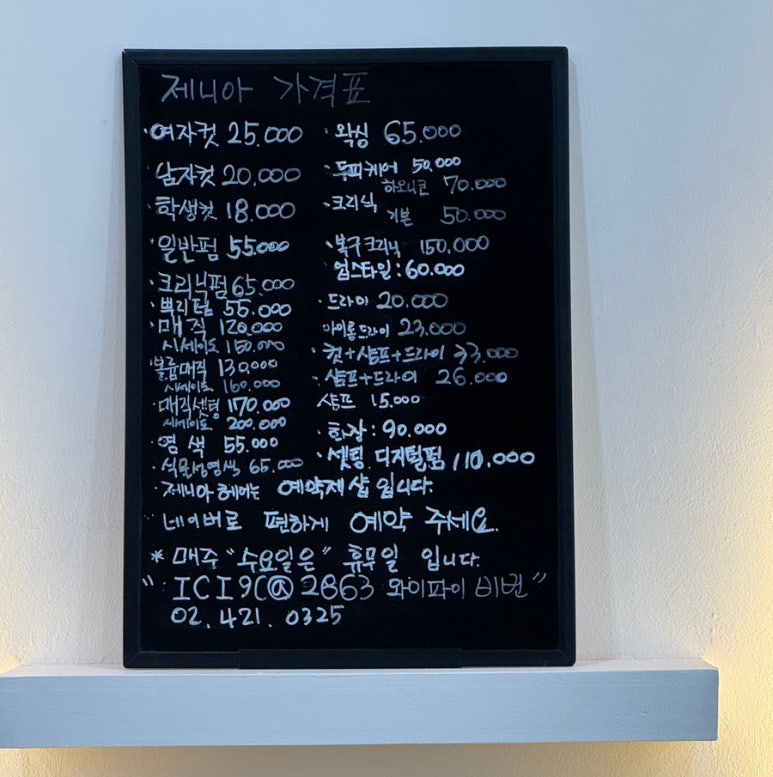 제니아 가격표
· 여자컷 25.000
· 남자컷 20.000
· 학생컷 18.000
· 일반펌 55.000
· 크리닉펌 65.000
· 뿌리펌 55.000
· 매직 120.000
시세이도 150.000
· 볼륨매직 130.000
시세이도 160.000
· 매직셋팅 170.000
시세이도 200.000
· 염색 55.000
· 식물성염색 65.000
· 왁싱 65.000
· 두피케어 50.000
· 크리닉 하오니코 70.000
기본 50.000
· 복구크리닉 150.000
· 업스타일 : 60.000
· 드라이 20.000
아이롱드라이 23.000
· 컷+샴프+드라이 33.000
· 샴프+드라이 26.000
샴프 15.000
· 화장 : 90.000
· 셋팅. 디지털펌 110.000
· 제니아 헤어는 예약제 샵 입니다.
네이버로 편하게 예약 주세요.
* 매주 "수요일은" 휴무일 입니다.
" ICI9C@2863 와이파이 비번"
02.421.0325